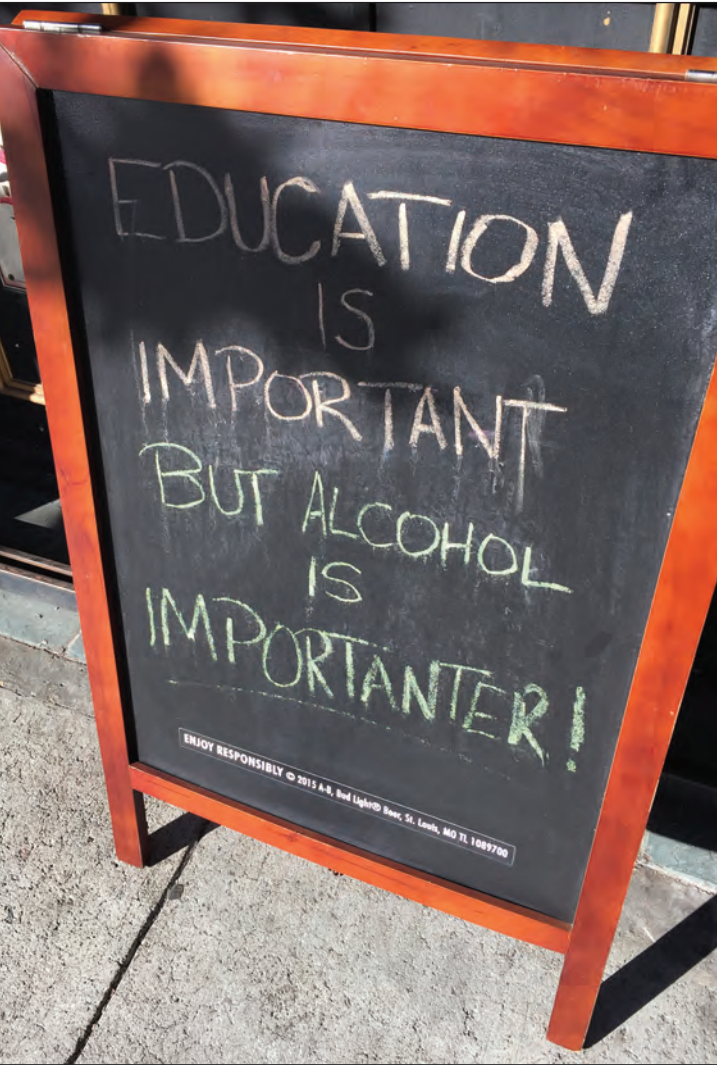 EDUCATION
IS
IMPORTANT
BUT ALCOHOL
IS
IMPORTANTER!
ENJOY RESPONSIBLY © 2015 A-B, Bud Light® Beer, St. Louis, MO TL 1089700